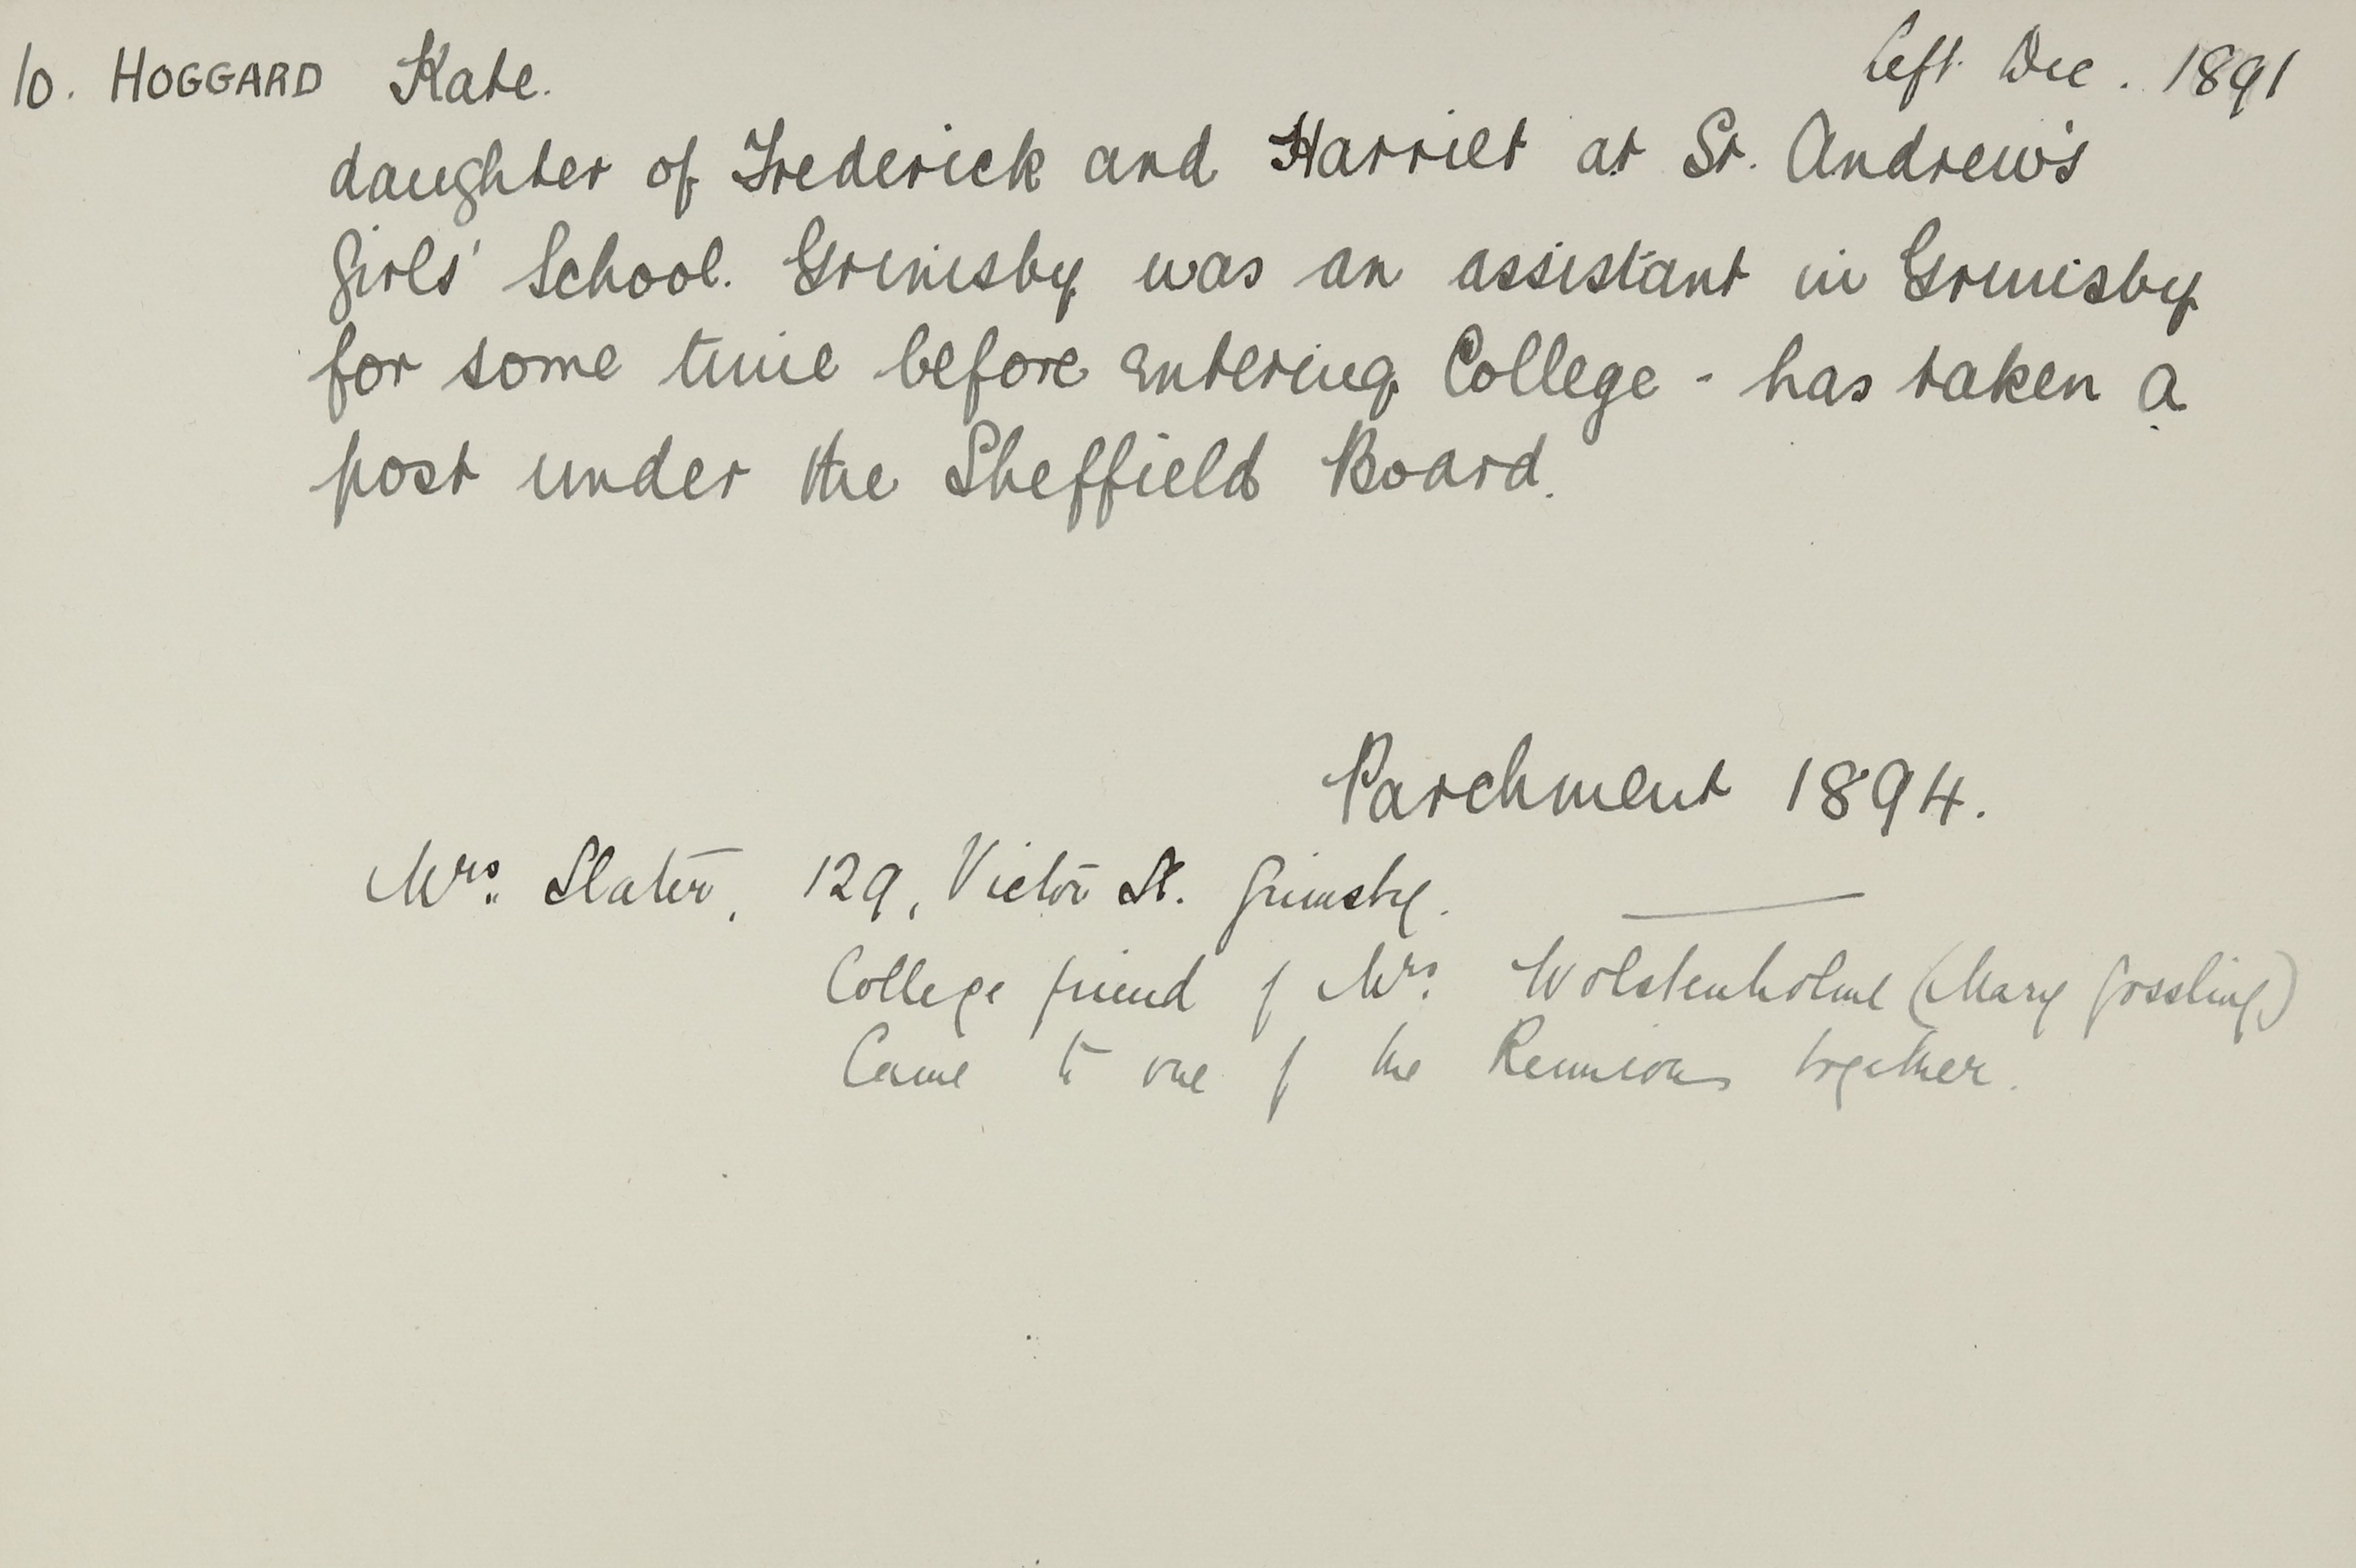 10. HOGGARD Kate. Left Dec. 1891
daughter of Frederick and Harriet at St. Andrew's
Girls' School. Grimsby was an assistant in Grimsby
for some time before entering College - has taken a
post under the Sheffield Board.
Parchment 1894.
Mrs. Slater, 129, Victor St. Grimsby.
College friend of Mrs. Wolstenholme (Mary Gossling)
Came to one of the Reunions together.